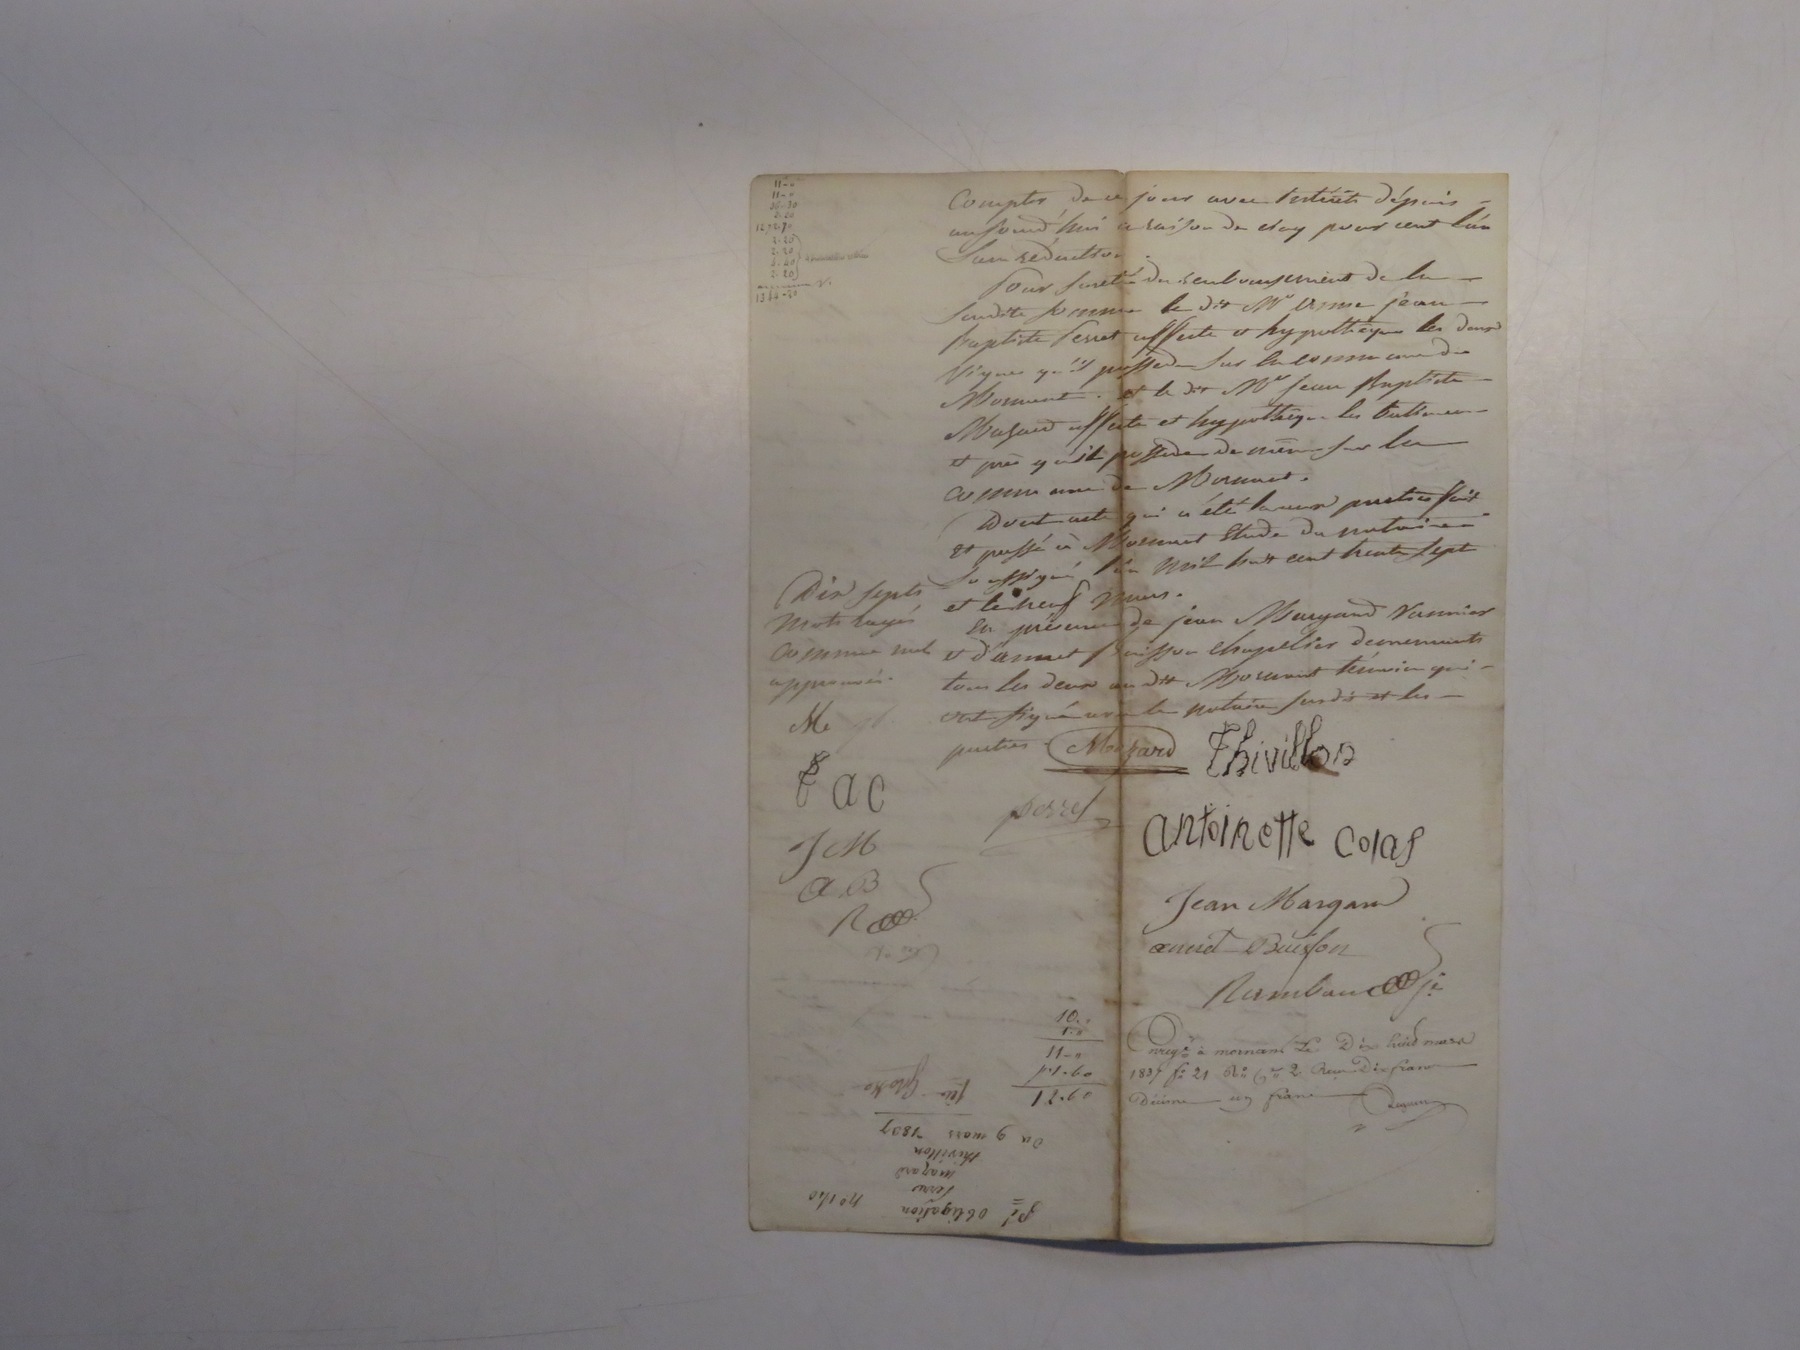 11-"
11-"
2.20
2.20
2.20
2.20
Compter de ce jour avec Intérêts dépuis -
aujourd'hui a raison de cinq pour cent l'an
Sans réduction.
Pour sureté du remboursement de la
Susdite somme le dit Mr jean
baptiste Perret affecte et hypothèque les deux
Vignes qu'il possède sur la commune de
Mornant. et le dit Mr jean Baptiste
Mazard affecte et hypothèque les batimens
et près qu'il possède de même sur la
commune de Mornant.
Dont acte qui a été lu aux parties fait
et passé à Mornant Etude du notaire
soussigné, l'an Mil huit cent trente sept
et le neuf Mars.
En présence de jean Margand
et d'annet Buisson chapelier demeurants
tous les deux au dit Mornant témoins qui -
ont signé avec le notaire susdit et les -
parties.
Dix septs
Mots rayés
Comme nul
approuvés.
M
T a c
J M
a B
R
Mazard Thivillon
perret
antoinette colas
Jean Margand
annet Buisson
Rambaud
10."
1."
11-"
1.60
12.60
Enregé à mornant Le Dix huit mars
1837 fo 21 Ro Ce 2 Reçu Dix francs
Décime un franc
Pre obligation no 140
Perret
mazard
thivillon
du 9 mars 1837
pre Grosse